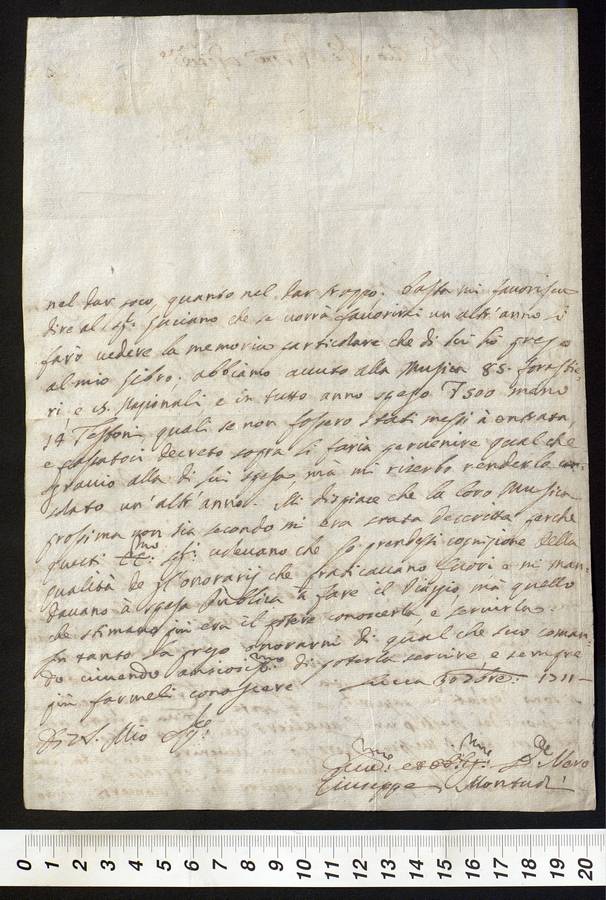 nel dar poco, quanto nel dar troppo. Basta mi favorisca
dire al Sr. Luciano che se vorrà favorirli un altr'anno li
farò vedere la memoria particolare che di lui hò preso
al mio libro. abbiamo avuto alla Musica 85. forastie
ri, e Nazionali e in tutto anno speso 7500 meno
14 Testoni quali se non fossero stati messi à entrata,
e passatoci decreto sopra li faria pervenire qual che
sgravio alla di lui spesa mà mi riserbo renderlo con
solato un'altr'anno. Mi dispiace che la loro Musica
prossima non sia secondo mi era stata descritta perche
questi SSri vedevano che io prendessi cognizione della
qualità de gl'onorarij che praticavano fuori e mi man
davano à spesa publica à fare il viaggio mà quello
che stimavo più era il potere conoscerla e servirla.
In tanto la prego onorarmi di qual che suo coman
do vivendo ansiosissmo di poterla servire e sempre
più farmeli conoscere Lucca 1711
Di V. S. Mio Sigre
Devmo et Obligmo Sre Vero
Giuseppe Montuoli